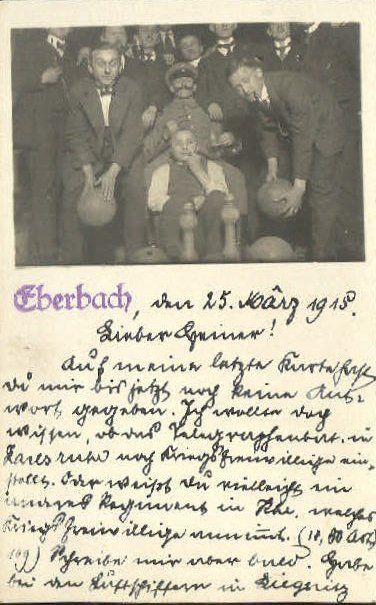 Eberbach, den 25. März 1915.
Lieber Heiner!
Auf meine letzte Karte hast
du mir bis jetzt noch keine Ant-
wort gegeben. Ich wollte doch
wissen, ob das Telegraphenbat. in
Karlsruhe noch Kriegsfreiwillige ein-
stellt. Oder weißt du vielleicht ein
anderes Regiment in Khe, welches
Kriegsfreiwillige annimmt. (14, 50 Art.
109) Schreibe mir aber bald. Habe
bei den Luftschiffern in Liegnitz